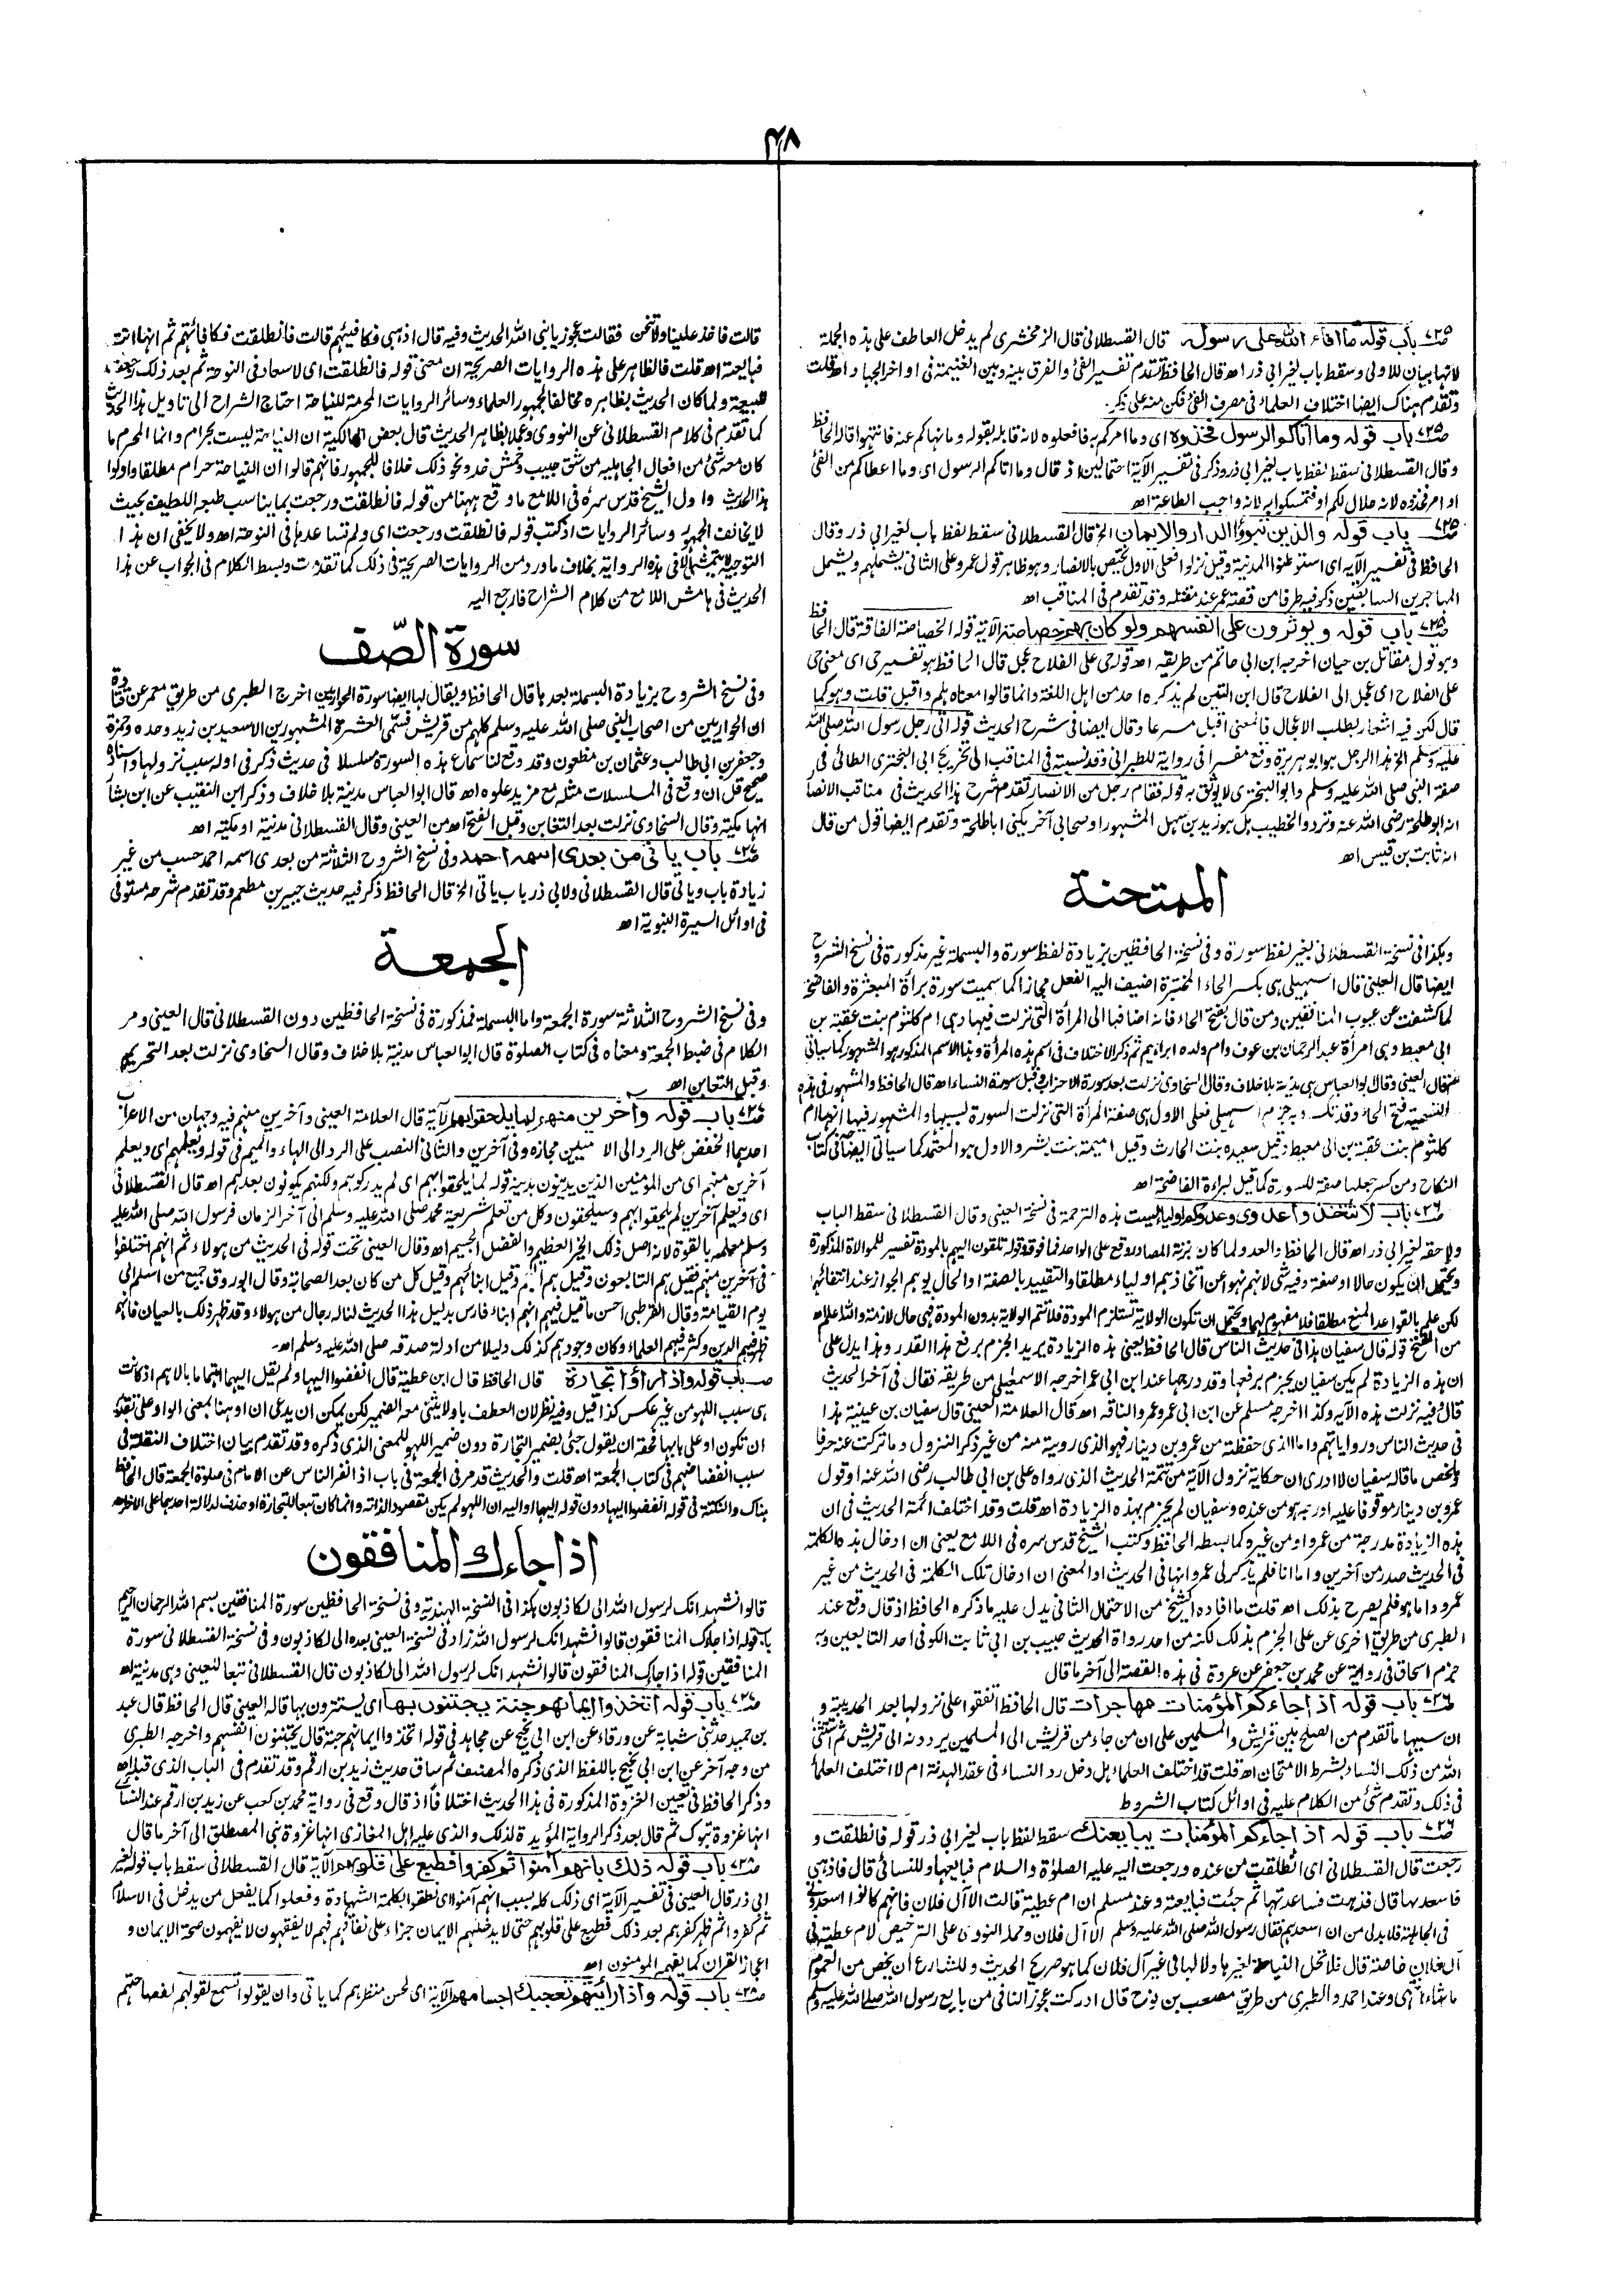 ۴۸
ص۷۲۵ باب قوله ما افاء الله على رسوله قال القسطلانى قال الزمخشرى لم يدخل العاطف على هذه الجملة
لانها بيان للاولى وسقط باب لغير ابى ذر اھ قال الحافظ تقدم تفسير الفئ والفرق بينه وبين الغنيمة فى اواخر الجهاد اھ قلت
وتقدم هناك ايضا اختلاف العلماء فى مصرف الفئ فكن منه على ذكر
ص۷۲۵ باب قوله وما اتاكم الرسول فخذوه اى وما امركم به فافعلوه لانه قابله بقوله وما نهاكم عنه فانتهوا قاله الحافظ
وقال القسطلانى سقط لفظ باب لغير ابى ذر وذكر فى تفسير الآية احتمالين اذ قال وما اتاكم الرسول اى وما اعطاكم من الفئ
او امر فخذوه لانه حلال لكم او فتمسكوا به لانه واجب الطاعة اھ
ص۷۲۵ باب قوله والذين تبوؤا الدار والايمان الخ قال القسطلانى سقط لفظ باب لغير ابى ذر وقال
الحافظ فى تفسير الآيه اى استوطنوا المدينة وقيل نزلوا فعلى الاول يختص بالانصار وهو ظاهر قول عمر وعلى الثانى يشملهم ويشمل
المهاجرين السابقين ذكر فيه طرفا من قصة عمر عند مقتله وقد تقدم فى المناقب اھ
ص۷۲۵ باب قوله ويوثرون على انفسهم ولو كان بهم خصاصة الآية قوله الخصاصة الفاقة قال الحافظ
وهو قول مقاتل بن حيان اخرجه ابن ابى حاتم من طريقه اھ قوله حى على الفلاح عجل قال الحافظ هو تفسير حى اى معنى حى
على الفلاح اى عجل الى الفلاح قال ابن التين لم يذكره احد من اهل اللغة وانما قالوا معناه هلم واقبل قلت وهو كما
قال لكن فيه اشعار بطلب الاعجال فالمعنى اقبل مسرعا وقال ايضا فى شرح الحديث قوله اتى رجل رسول الله صلى الله
عليه وسلم الخ هذا الرجل هو ابو هريرة وقع مفسرا فى رواية للطبرانى وقد نسبته فى المناقب الى تخريج ابى البخترى الطائى فى
صفة النبى صلى الله عليه وسلم وابو البخترى لا يوثق به قوله فقام رجل من الانصار تقدم شرح هذا الحديث فى مناقب الانصا
انه ابو طلحة رضى الله عنه وتردد الخطيب هل هو زيد بن سهل المشهور او صحابى آخر يكنى ابا طلحة وتقدم ايضا قول من قال
انه ثابت بن قيس اھ
الممتحنة
وهكذا فى نسخة القسطلانى بغير لفظ سورة وفى نسخة الحافظين بزيادة لفظ سورة والبسملة غير مذكورة فى نسخ الشروح
ايضا قال العينى قال السهيلى هى بكسر الحاء المختبرة اضيف اليه الفعل مجازا كما سميت سورة برأة المبعثرة والفاضحة
لما كشفت عن عيوب المنافقين ومن قال بفتح الحاء فانه اضافها الى المرأة التى نزلت فيها وهى ام كلثوم بنت عقبة بن
ابى معيط وهى امرأة عبد الرحمان بن عوف وام ولده ابراهيم ثم ذكر الاختلاف فى اسم هذه المرأة وهذا الاسم المذكور هو المشهور كما سياتى
قال العينى وقال ابو العباس هى مدنية بلا خلاف وقال السخاوى نزلت بعد سورة الاحزاب وقبل سورة النساء اھ قال الحافظ والمشهور فى هذه
التسمية فتح الحاء وقد تكسر وبه جزم السهيلى فعلى الاول هى صفة المرأة التى نزلت السورة لسببها والمشهور فيها انها ام
كلثوم بنت عقبة بن ابى معيط وقيل سعيده بنت الحارث وقيل اميمة بنت بشر والاول هو المعتمد كما سياتى ايضاحه فى كتاب
النكاح ومن كسر جعلها صفة للسورة كما قيل لبراءة الفاضحة اھ
ص۷۲۶ باب لا تتخذوا عدوى وعدوكم اوليا ليست هذه الترجمة فى نسخة العينى وقال القسطلانى سقط الباب
ولاحقه لغير ابى ذر اھ قال الحافظ والعدو لما كان بزنة المصادر وقع على الواحد فما فوقه قوله تلقون اليهم بالمودة تفسير للموالاة المذكورة
ويحتمل ان يكون حالا او صفة وفيه شئ لانهم نهوا عن اتخاذهم اولياء مطلقا والتقييد بالصفة او الحال يوهم الجواز عند انتفائهما
لكن علم بالقواعد المنع مطلقا فلا مفهوم لهما ويحتمل ان تكون الولاية تستلزم المودة فلا تتم الولاية بدون المودة فهى حال لازمة والله اعلم اھ
من الفتح قوله قال سفيان هذا فى حديث الناس قال الحافظ يعنى هذه الزيادة يريد الجزم برفع هذا القدر وهذا يدل على
ان هذه الزيادة لم يكن سفيان يجزم برفعها وقد درجها عند ابن ابى عمر اخرجه الاسمعيلى من طريقه فقال فى آخر الحديث
قال فيه نزلت هذه الآيه وكذا اخرجه مسلم عن ابن ابى عمر وعمرو الناقد اھ قال العلامة العينى قال سفيان بن عيينة هذا
فى حديث الناس ورواياتهم واما الذى حفظته من عمرو بن دينار فهو الذى رويته منه من غير ذكر النزول وما تركت عنه حرفا
ولخص ما قاله سفيان لا ادرى ان حكاية نزول الآية من تتمة الحديث الذى رواه على بن ابى طالب رضى الله عنه او قول
عمرو بن دينار موقوفا عليه ادرجه هو من عنده وسفيان لم يجزم بهذه الزيادة اھ قلت وقد اختلف ائمة الحديث فى ان
هذه الزيادة مدرجة من عمرو او من غيره كما بسطه الحافظ وكتب الشيخ قدس سره فى اللامع يعنى ان ادخال هذه الكلمة
فى الحديث صدر من آخرين واما انا فلم يذكر لى عمرو انها فى الحديث او المعنى ان ادخال تلك الكلمة فى الحديث من غير
عمرو واما هو فلم يصرح بذلك اھ قلت ما افاده الشيخ من الاحتمال الثانى يدل عليه ما ذكره الحافظ اذ قال وقع عند
الطبرى من طريق اخرى عن على الجزم بذلك لكنه من احد رواة الحديث حبيب بن ابى ثابت الكوفى احد التابعين وبه
جزم اسحاق فى رواية عن محمد بن جعفر عن عروة فى هذه القصة الى آخر ما قال
ص۷۲۶ باب قوله اذا جاءكم المؤمنات مهاجرات قال الحافظ اتفقوا على نزولها بعد الحديبية و
ان سببها ما تقدم من الصلح بين قريش والمسلمين على ان من جاء من قريش الى المسلمين يردونه الى قريش ثم استثنى
الله من ذلك النساء بشرط الامتحان اھ قلت قد اختلف العلماء هل دخل رد النساء فى عقد الهدنة ام لا اختلف العلما
فى ذلك وتقدم شئ من الكلام عليه فى اوائل كتاب الشروط
ص۷۲۶ باب قوله اذا جاءكم المؤمنات يبايعنك سقط لفظ باب لغير ابى ذر قوله فانطلقت و
رجعت قال القسطلانى اى انطلقت من عنده ورجعت اليه عليه الصلوة والسلام فبايعها وللنسائى قال فاذهبى
فاسعديها قال فذهبت فساعدتها ثم جئت فبايعته وعند مسلم ان ام عطية قالت الا آل فلان فانهم كانوا اسعدونى
فى الجاهلية فلا بد لى من ان اسعدهم فقال رسول الله صلى الله عليه وسلم الا آل فلان وحمله النووى على الترخيص لام عطية فى
آل فلان خاصة قال فلا تحل النياحة لغيرها ولا لها فى غير آل فلان كما هو صريح الحديث وللشارع ان يخص من العموم
ما شاء انتهى وعند احمد والطبرى من طريق مصعب بن نوح قال ادركت عجوزا لنا فى من بايع رسول الله صلى الله عليه وسلم
قالت فاخذ علينا ولا تنحن فقالت عجوز يا نبى الله الحديث وفيه قال اذهبى فكافيئهم قالت فانطلقت فكافأتهم ثم انها اتته
فبايعته اھ قلت فالظاهر على هذه الروايات الصريحة ان معنى قوله فانطلقت اى لاسعاد فى النوحة ثم بعد ذلك رجعت
للبيعة ولما كان الحديث بظاهره مخالفا لجمهور العلماء وسائر الروايات المحرمة للنياحة احتاج الشراح الى تاويل هذا الحديث
كما تقدم فى كلام القسطلانى عن النووى وعملا بظاهر الحديث قال بعض المالكية ان النياحة ليست بحرام وانما المحرم ما
كان معه شئ من افعال الجاهليه من شق جيب وخمش خد ونحو ذلك خلافا للجمهور فانهم قالوا ان النياحة حرام مطلقا واولوا
هذا الحديث واول الشيخ قدس سره فى اللامع ما وقع ههنا من قوله فانطلقت ورجعت بما يناسب طبعه اللطيف بحيث
لا يخالف الجمهور وسائر الروايات اذ كتب قوله فانطلقت ورجعت اى ولم تساعدها فى النوحة اھ ولا يخفى ان هذا
التوجيه لا يتمشى الا فى هذه الرواية بخلاف ما ورد من الروايات الصريحة فى ذلك كما تقدمت وبسط الكلام فى الجواب عن هذا
الحديث فى هامش اللامع من كلام الشراح فارجع اليه
سورة الصّف
وفى نسخ الشروح بزيادة البسملة بعدها قال الحافظ ويقال لها ايضا سورة الحواريين اخرج الطبرى من طريق معمر عن قتادة
ان الحواريين من اصحاب النبى صلى الله عليه وسلم كلهم من قريش فسمى العشرة المشهورين الا سعيد بن زيد وحده وحمزة
وجعفر بن ابى طالب وعثمان بن مظعون وقد وقع لنا سماع هذه السورة مسلسلا فى حديث ذكر فى اوله سبب نزولها واسناده
صحيح قل ان وقع فى المسلسلات مثله مع مزيد علوه اھ قال ابو العباس مدنية بلا خلاف وذكر ابن النقيب عن ابن بشار
انها مكية وقال السخاوى نزلت بعد التغابن وقبل الفتح اھ من العينى وقال القسطلانى مدنية او مكية اھ
ص۷۲۷ باب ياتى من بعدى اسمه احمد وفى نسخ الشروح الثلاثة من بعدى اسمه احمد حسب من غير
زيادة باب وياتى قال القسطلانى ولابى ذر باب ياتى الخ قال الحافظ ذكر فيه حديث جبير بن مطعم وقد تقدم شرحه مستوفى
فى اوائل السيرة النبوية اھ
الجمعة
وفى نسخ الشروح الثلاثة سورة الجمعة واما البسملة فمذكورة فى نسخة الحافظين دون القسطلانى قال العينى ومر
الكلام فى ضبط الجمعة ومعناه فى كتاب الصلوة قال ابو العباس مدنية بلا خلاف وقال السخاوى نزلت بعد التحريم
وقبل التغابن اھ
ص۷۲۷ باب قوله وآخرين منهم لما يلحقوا بهم الآية قال العلامة العينى وآخرين منهم فيه وجهان من الاعراب
احدهما الخفض على الرد الى الاميين مجازه وفى آخرين والثانى النصب على الرد الى الهاء والميم فى قوله ويعلمهم اى ويعلم
آخرين منهم اى من المؤمنين الذين يدينون بدينه قوله لما يلحقوا بهم اى لم يدركوهم ولكنهم يكونون بعدهم اھ قال القسطلانى
اى ويعلم آخرين لم يلحقوا بهم وسيلحقون وكل من تعلم شريعة محمد صلى الله عليه وسلم الى آخر الزمان فرسول الله صلى الله عليه
وسلم معلمه بالقوة لانه اصل ذلك الخير العظيم والفضل الجسيم اھ وقال العينى تحت قوله فى الحديث من هولاء ثم انهم اختلفوا
فى آخرين منهم فقيل هم التابعون وقيل هم العجم وقيل ابنائهم وقيل كل من كان بعد الصحابة وقال ابو روق جميع من اسلم الى
يوم القيامة وقال القرطبى احسن ما قيل فيهم انهم ابناء فارس بدليل هذا الحديث لناله رجال من هولاء وقد ظهر ذلك بالعيان فانهم
ظهر فيهم الدين وكثر فيهم العلماء وكان وجودهم كذلك دليلا من ادلة صدقه صلى الله عليه وسلم اھ
ص باب قوله واذا رأوا تجارة قال الحافظ قال ابن عطية قال انفضوا اليها ولم يقل اليهما اهتماما بالاهم اذ كانت
هى سبب اللهو من غير عكس كذا قيل وفيه نظر لان العطف باو لا يثنى معه الضمير لكن يمكن ان يدعى ان او هنا بمعنى الواو على تقدير
ان تكون او على بابها فحقه ان يقول جئ بضمير التجارة دون ضمير اللهو للمعنى الذى ذكره وقد تقدم بيان اختلاف النقلة فى
سبب انفضاضهم فى كتاب الجمعة اھ قلت والحديث قد مر فى الجمعة فى باب اذا نفر الناس عن الامام فى صلوة الجمعة قال الحافظ
هناك والنكتة فى قوله انفضوا اليها دون قوله اليهما او اليه ان اللهو لم يكن مقصودا لذاته وانما كان تبعا للتجارة او حذف لدلالة احدهما على الاخر اھ
اذا جاءك المنافقون
قالوا نشهد انك لرسول الله الى لكاذبون هكذا فى النسخة الهندية وفى نسخة الحافظين سورة المنافقين بسم الله الرحمان الرحيم
باب قوله اذا جاءك المنافقون قالوا نشهد انك لرسول الله زاد فى نسخة العينى بعده الى لكاذبون وفى نسخة القسطلانى سورة
المنافقين قوله اذا جاءك المنافقون قالوا نشهد انك لرسول الله الى لكاذبون قال القسطلانى تبعا للعينى وهى مدنية اھ
ص۷۲۷ باب قوله اتخذوا ايمانهم جنة يجتنون بها اى يستترون بها قاله العينى قال الحافظ قال عبد
بن حميد حدثنى شبابة عن ورقاء عن ابن ابى نجيح عن مجاهد فى قوله اتخذوا ايمانهم جنة قال يجتنون انفسهم واخرجه الطبرى
من وجه آخر عن ابن ابى نجيح باللفظ الذى ذكره المصنف ثم ساق حديث زيد بن ارقم وقد تقدم فى الباب الذى قبله اھ
وذكر الحافظ فى تعيين الغزوة المذكورة فى هذا الحديث اختلافا اذ قال وقع فى رواية محمد بن كعب عن زيد بن ارقم عند النسائى
انها غزوة تبوك ثم قال بعد ذكر الرواية المؤيدة لذلك والذى عليه اهل المغازى انها غزوة بنى المصطلق الى آخر ما قال
ص۷۲۸ باب قوله ذلك بانهم آمنوا ثم كفروا فطبع على قلوبهم الآية قال القسطلانى سقط باب قوله لغير
ابى ذر قال العينى فى تفسير الآية اى ذلك كله بسبب انهم آمنوا اى نطقوا بالكلمة الشهادة وفعلوا كما يفعل من يدخل فى الاسلام
ثم كفروا ثم ظهر كفرهم بعد ذلك فطبع على قلوبهم حتى لا يدخلهم الايمان جزاء على نفاقهم فهم لا يفقهون لا يفهمون صحة الايمان و
اعجاز القرآن كما يفهم المؤمنون اھ
ص۷۲۸ باب قوله واذا رأيتهم تعجبك اجسامهم الآية اى لحسن منظرهم كما ياتى وان يقولوا تسمع لقولهم لفصاحتهم